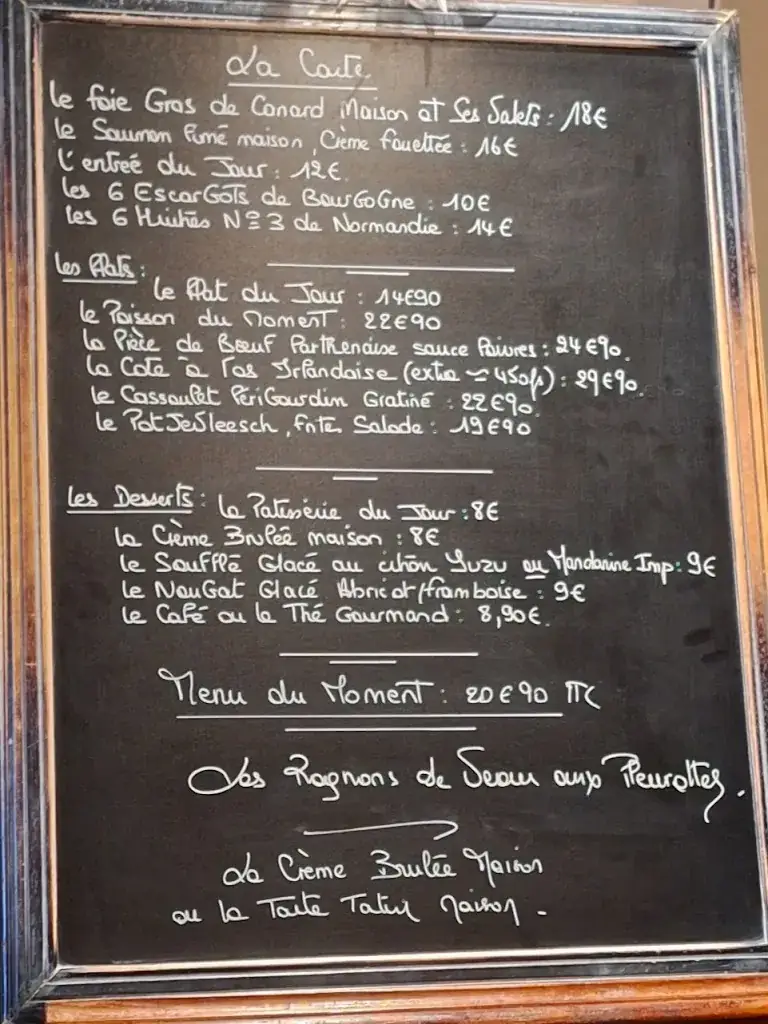 La Carte
le foie Gras de Canard Maison et Ses Salets : 18€
le Saumon fumé maison, Crème fouettée : 16€
l'entreé du Jour : 12€.
les 6 EscarGots de BourGoGne : 10€
les 6 Huitres N°3 de Normandie : 14€
les Plats :
le Plat du Jour : 14€90
le Poisson du moment : 22€90
la Pièce de Bœuf Parthenaise sauce Poivres : 24€90.
la Cote à l'os Irlandaise (extra ≃ 450g) : 29€90.
le Cassoulet PériGourdin Gratiné : 22€90.
le PotJevleesch, frites Salade : 19€90
les Desserts : la Patisserie du Jour : 8€
la Crème Brulée maison : 8€
le Soufflé Glacé au citron Yuzu ou Mandarine Imp : 9€
le NouGat Glacé Abricot/framboise : 9€
le Café ou le Thé Gourmand : 8,90€.
Menu du Moment : 20€90 TTC
Les Rognons de Veau aux Pleurottes.
La Crème Brulée Maison
ou la Tarte Tatin Maison.